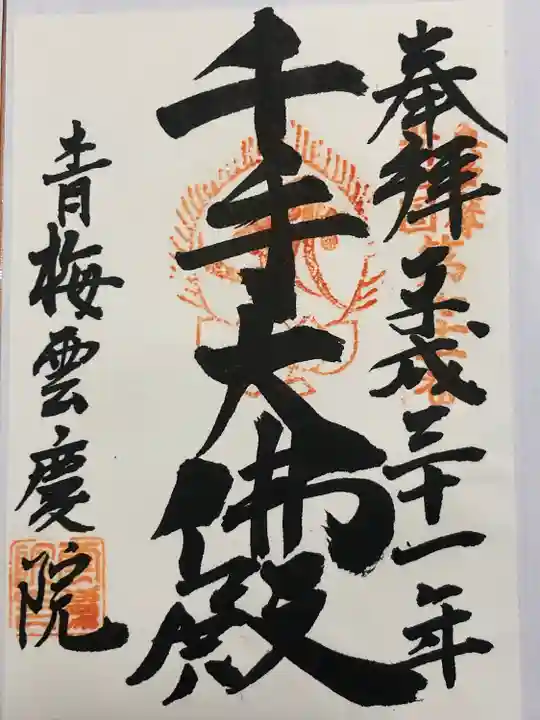 奉拜 平成三十一年
千手大佛殿
青梅雲慶院